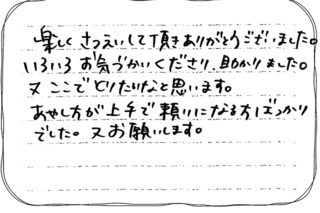 楽しくさつえいして頂きありがとうございました。
いろいろお気づかいくださり、助かりました。
又ここでとりたいなと思います。
あやし方が上手で頼りになる方ばっかり
でした。又お願いします。